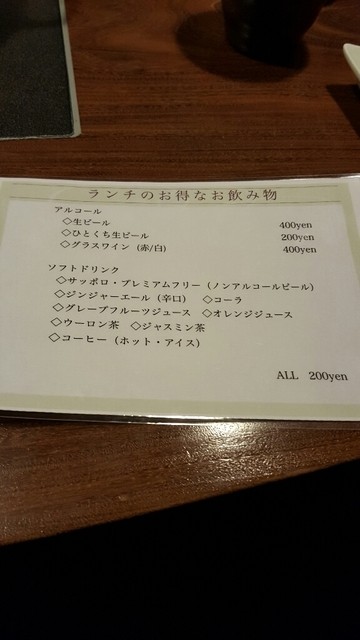 ランチのお得なお飲み物
アルコール
◇生ビール 400yen
◇ひとくち生ビール 200yen
◇グラスワイン（赤/白） 400yen
ソフトドリンク
◇サッポロ・プレミアムフリー（ノンアルコールビール）
◇ジンジャーエール（辛口） ◇コーラ
◇グレープフルーツジュース ◇オレンジジュース
◇ウーロン茶 ◇ジャスミン茶
◇コーヒー（ホット・アイス）
ALL 200yen